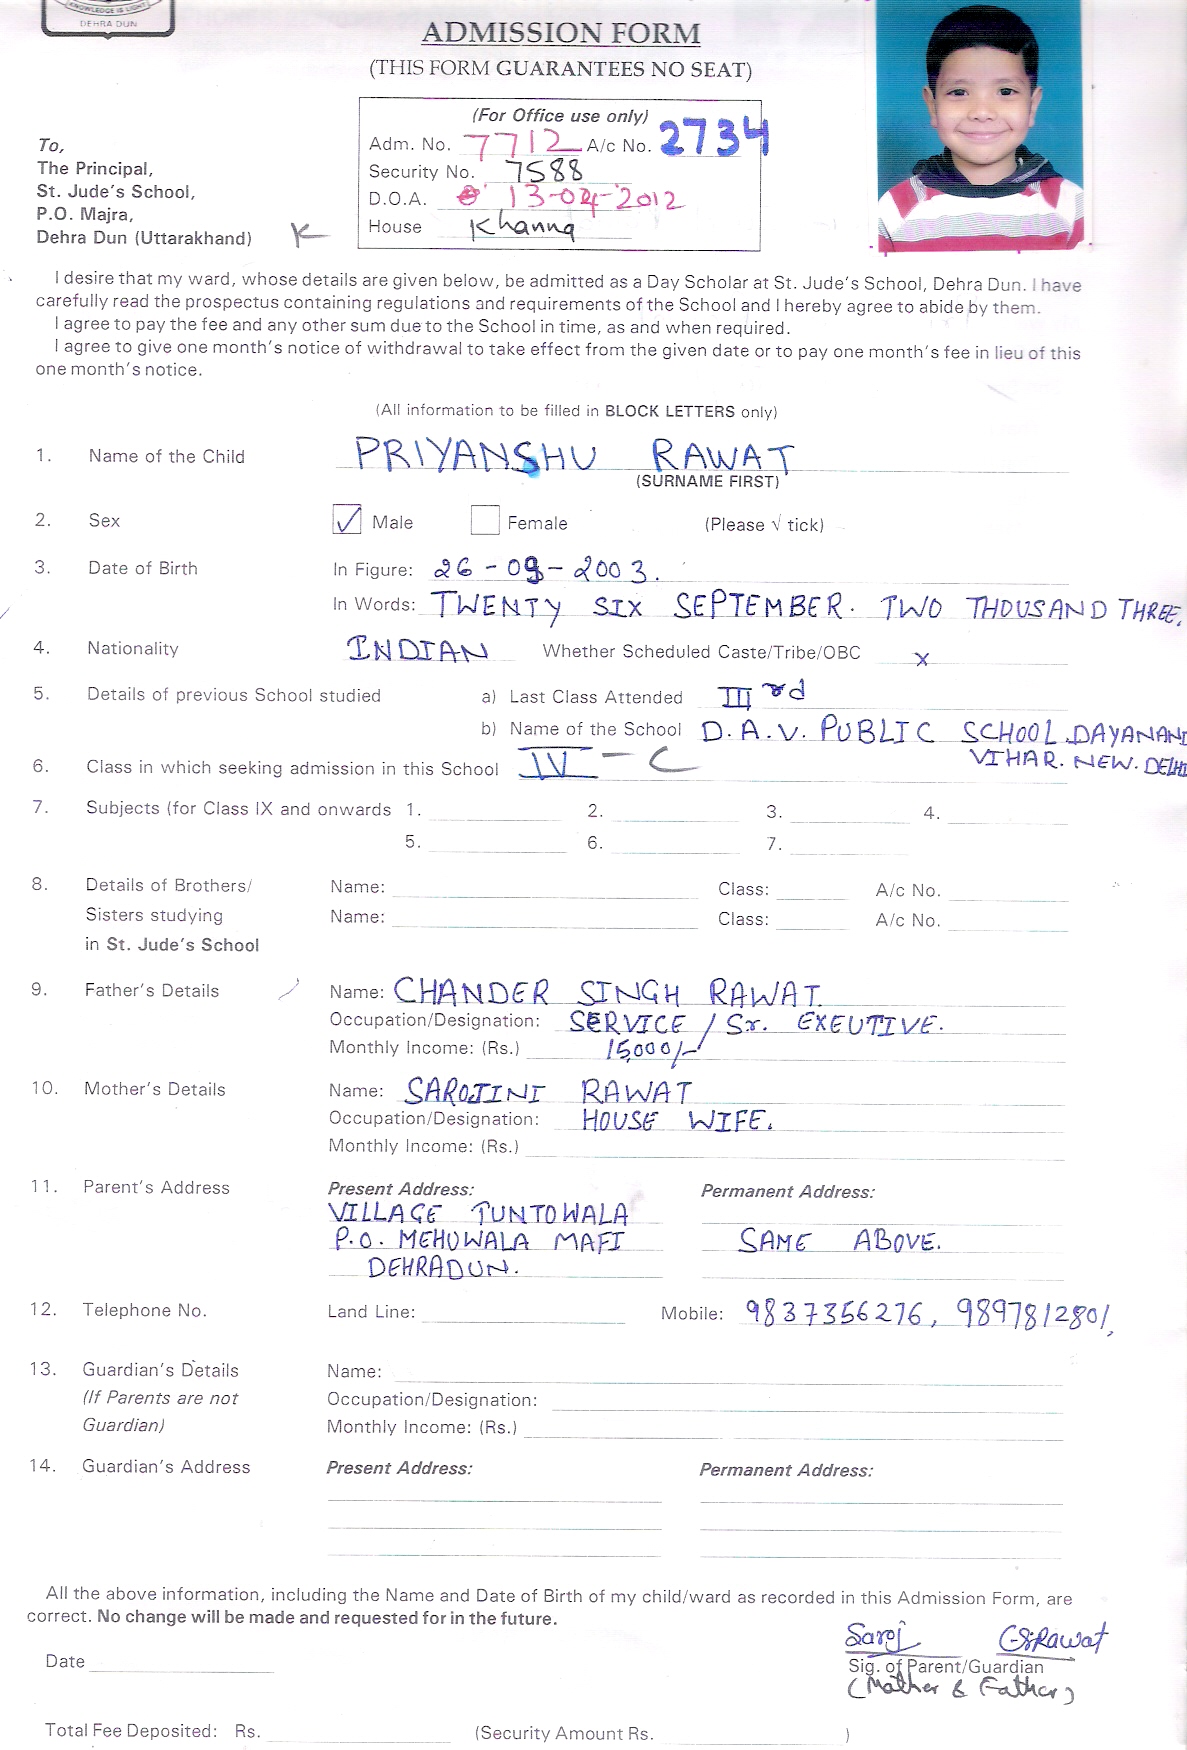 KNOWLEDGE IS LIGHT
DEHRA DUN
ADMISSION FORM
(THIS FORM GUARANTEES NO SEAT)
(For Office use only)
Adm. No. 7712 A/c No. 2734
Security No. 7588
D.O.A. 13-04-2012
House Khanna
To,
The Principal,
St. Jude's School,
P.O. Majra,
Dehra Dun (Uttarakhand)
K
I desire that my ward, whose details are given below, be admitted as a Day Scholar at St. Jude's School, Dehra Dun. I have
carefully read the prospectus containing regulations and requirements of the School and I hereby agree to abide by them.
I agree to pay the fee and any other sum due to the School in time, as and when required.
I agree to give one month's notice of withdrawal to take effect from the given date or to pay one month's fee in lieu of this
one month's notice.
(All information to be filled in BLOCK LETTERS only)
1. Name of the Child PRIYANSHU RAWAT
(SURNAME FIRST)
2. Sex ✓ Male Female (Please √ tick)
3. Date of Birth In Figure: 26-09-2003.
In Words: TWENTY SIX SEPTEMBER. TWO THOUSAND THREE.
4. Nationality INDIAN Whether Scheduled Caste/Tribe/OBC x
5. Details of previous School studied a) Last Class Attended III rd
b) Name of the School D.A.V. PUBLIC SCHOOL DAYANAND
VIHAR. NEW. DELHI
6. Class in which seeking admission in this School IV - C
7. Subjects (for Class IX and onwards 1. 2. 3. 4.
5. 6. 7.
8. Details of Brothers/ Name: Class: A/c No.
Sisters studying Name: Class: A/c No.
in St. Jude's School
9. Father's Details Name: CHANDER SINGH RAWAT.
Occupation/Designation: SERVICE / Sr. EXEUTIVE.
Monthly Income: (Rs.) 15,000/-
10. Mother's Details Name: SAROJINI RAWAT
Occupation/Designation: HOUSE WIFE.
Monthly Income: (Rs.)
11. Parent's Address Present Address: Permanent Address:
VILLAGE TUNTOWALA
P.O. MEHUWALA MAFI SAME ABOVE.
DEHRADUN.
12. Telephone No. Land Line: Mobile: 9837356276, 9897812801,
13. Guardian's Details Name:
(If Parents are not Occupation/Designation:
Guardian) Monthly Income: (Rs.)
14. Guardian's Address Present Address: Permanent Address:
All the above information, including the Name and Date of Birth of my child/ward as recorded in this Admission Form, are
correct. No change will be made and requested for in the future.
Saroj CSRawat
Date Sig. of Parent/Guardian
(Mother & Father)
Total Fee Deposited: Rs. (Security Amount Rs. )